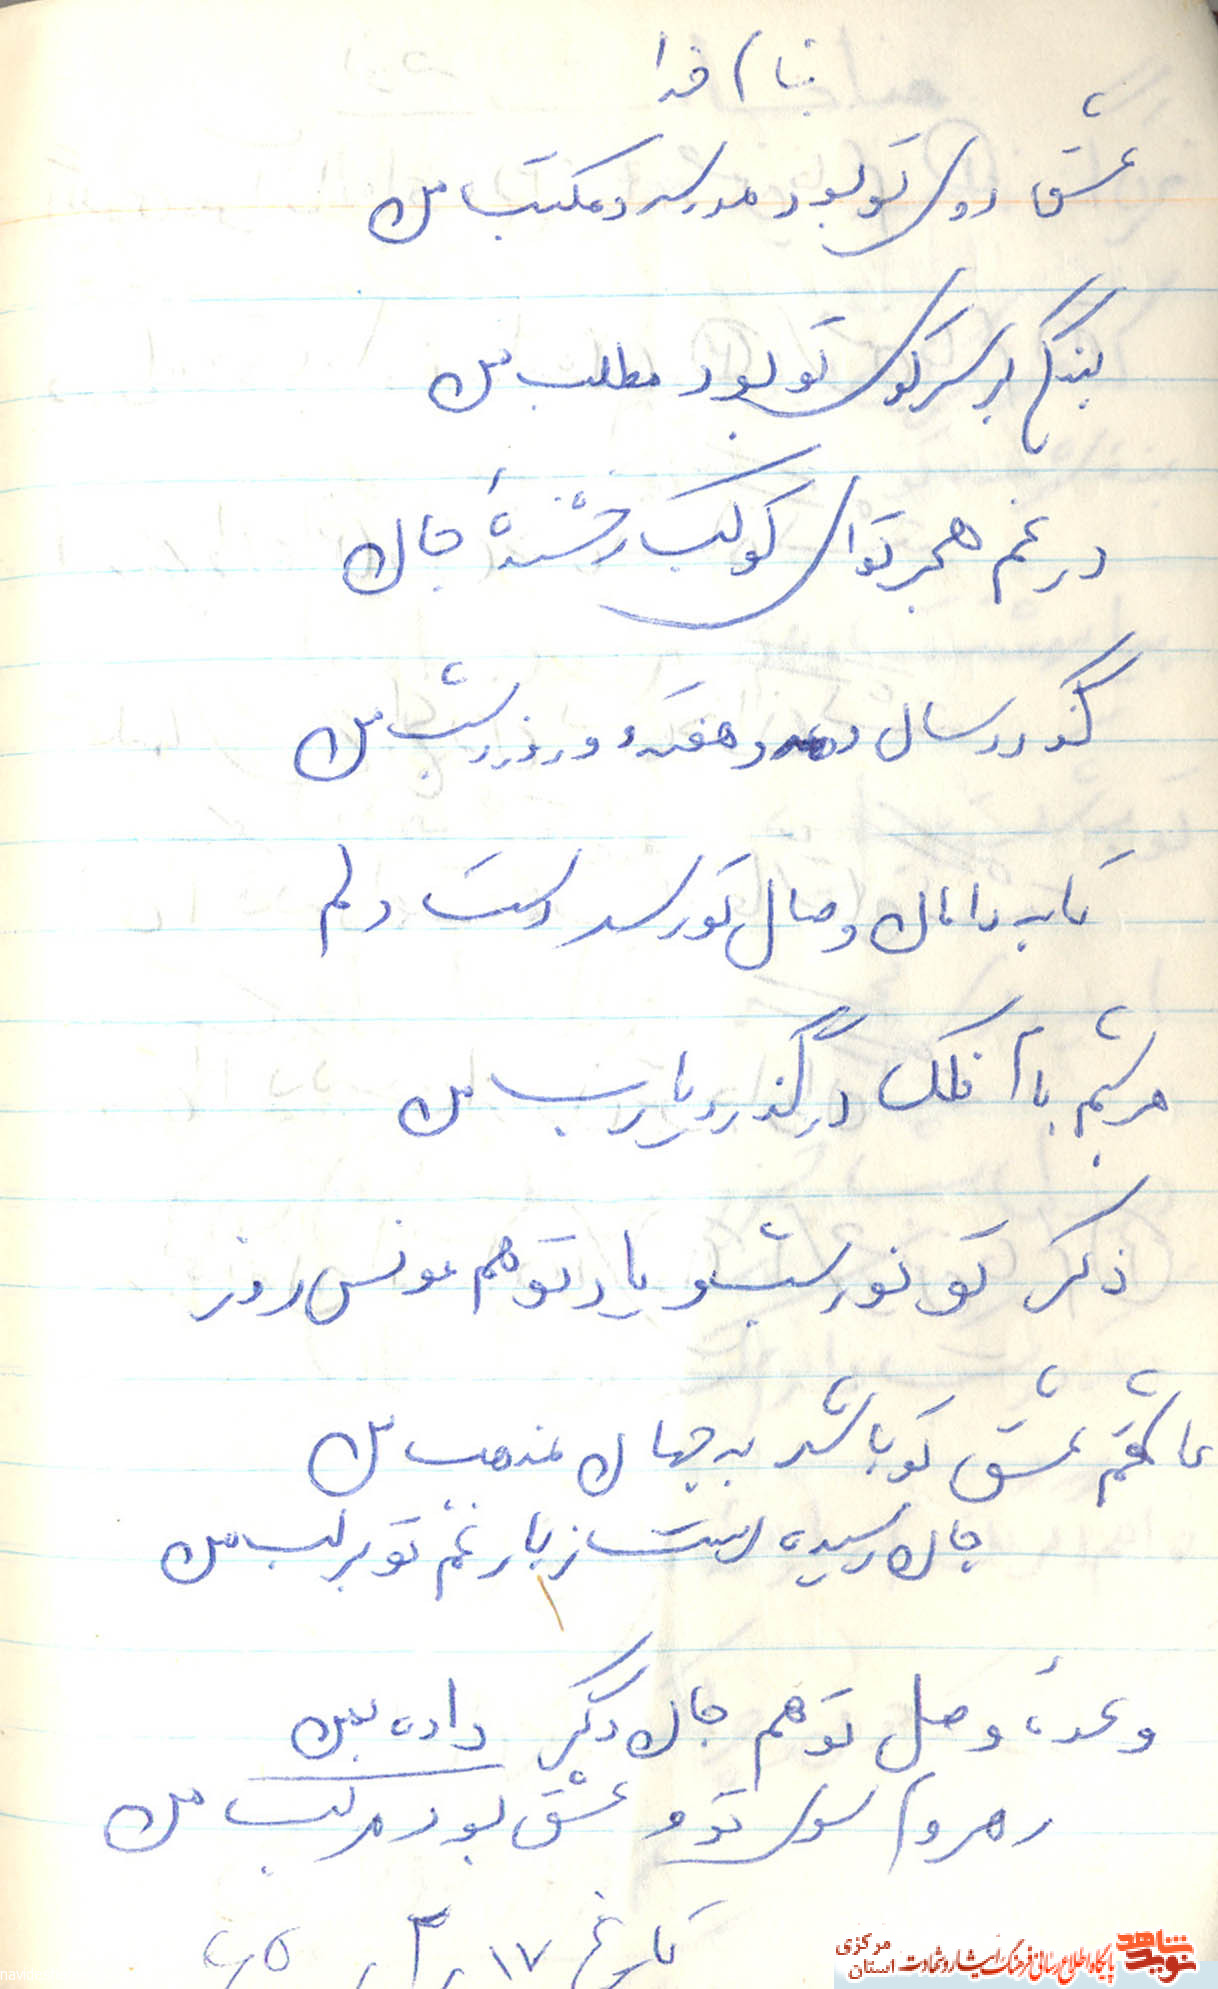 بنام خدا
عشق روی تو بود مدرسه و مکتب من
بندگی بر سر کوی تو بود مطلب من
در غم هجر تو ای کوکب رخشندۀ جان
گذرد سال و مه و هفته و روز و شب من
تا به دامان وصال تو رسد دست دلم
هر شبم با فلک در گذرد یارب من
ذکر تو نور شب و یاد تو هم مونس روز
عاشقم عشق تو باشد به جهان مذهب من
جان رسیده است ز بار غم تو بر لب من
وعدۀ وصل تو هم جان دگر داده بمن
رهروم سوی تو و عشق بود مرکب من
تاریخ ۱۷ر۳ر۶۵
نوید شاهد
پایگاه اطلاع رسانی فرهنگ ایثار و شهادت
استان مرکزی